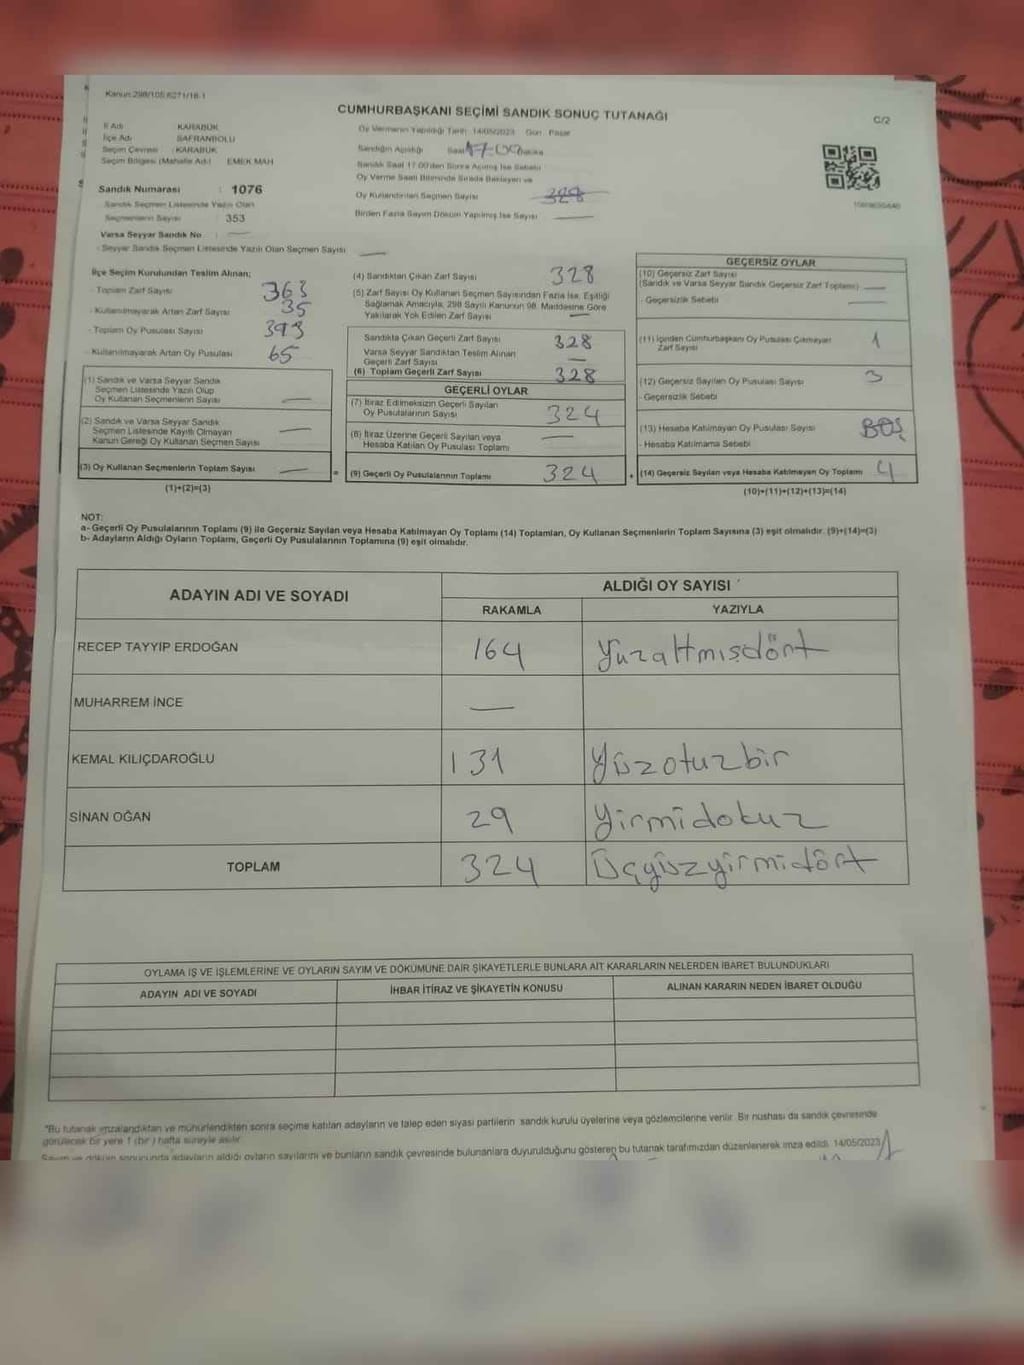 Kanun:298/105 6271/18-1
CUMHURBAŞKANI SEÇİMİ SANDIK SONUÇ TUTANAĞI
C/2
İl Adı : KARABÜK
İlçe Adı : SAFRANBOLU
Seçim Çevresi : KARABÜK
Seçim Bölgesi (Mahalle Adı) : EMEK MAH
Sandık Numarası : 1076
Sandık Seçmen Listesinde Yazılı Olan
Seçmenlerin Sayısı : 353
Varsa Seyyar Sandık No : —
- Seyyar Sandık Seçmen Listesinde Yazılı Olan Seçmen Sayısı —
Oy Vermenin Yapıldığı Tarih 14/05/2023 Gün : Pazar
Sandığın Açıldığı Saat 17.00 Dakika
Sandık Saat 17:00'den Sonra Açılmış İse Sebebi
Oy Verme Saati Bitiminde Sırada Bekleyen ve
Oy Kullandırılan Seçmen Sayısı 328
Birden Fazla Sayım Döküm Yapılmış İse Sayısı —
İlçe Seçim Kurulundan Teslim Alınan;
- Toplam Zarf Sayısı 363
- Kullanılmayarak Artan Zarf Sayısı 35
- Toplam Oy Pusulası Sayısı 393
- Kullanılmayarak Artan Oy Pusulası 65
(1) Sandık ve Varsa Seyyar Sandık
Seçmen Listesinde Yazılı Olup
Oy Kullanan Seçmenlerin Sayısı —
(2) Sandık ve Varsa Seyyar Sandık
Seçmen Listesinde Kayıtlı Olmayan
Kanun Gereği Oy Kullanan Seçmen Sayısı —
(3) Oy Kullanan Seçmenlerin Toplam Sayısı —
(1)+(2)=(3)
(4) Sandıktan Çıkan Zarf Sayısı 328
(5) Zarf Sayısı Oy Kullanan Seçmen Sayısından Fazla İse, Eşitliği
Sağlamak Amacıyla, 298 Sayılı Kanunun 98. Maddesine Göre
Yakılarak Yok Edilen Zarf Sayısı —
Sandıkta Çıkan Geçerli Zarf Sayısı 328
Varsa Seyyar Sandıktan Teslim Alınan
Geçerli Zarf Sayısı —
(6) Toplam Geçerli Zarf Sayısı 328
GEÇERLİ OYLAR
(7) İtiraz Edilmeksizin Geçerli Sayılan
Oy Pusulalarının Sayısı 324
(8) İtiraz Üzerine Geçerli Sayılan veya
Hesaba Katılan Oy Pusulası Toplamı —
= (9) Geçerli Oy Pusulalarının Toplamı 324
GEÇERSİZ OYLAR
(10) Geçersiz Zarf Sayısı
(Sandık ve Varsa Seyyar Sandık Geçersiz Zarf Toplamı) —
- Geçersizlik Sebebi —
(11) İçinden Cumhurbaşkanı Oy Pusulası Çıkmayan
Zarf Sayısı 1
(12) Geçersiz Sayılan Oy Pusulası Sayısı 3
- Geçersizlik Sebebi
(13) Hesaba Katılmayan Oy Pusulası Sayısı BOŞ
- Hesaba Katılmama Sebebi
+ (14) Geçersiz Sayılan veya Hesaba Katılmayan Oy Toplamı 4
(10)+(11)+(12)+(13)=(14)
NOT:
a- Geçerli Oy Pusulalarının Toplamı (9) ile Geçersiz Sayılan veya Hesaba Katılmayan Oy Toplamı (14) Toplamları, Oy Kullanan Seçmenlerin Toplam Sayısına (3) eşit olmalıdır. (9)+(14)=(3)
b- Adayların Aldığı Oyların Toplamı, Geçerli Oy Pusulalarının Toplamına (9) eşit olmalıdır.
ADAYIN ADI VE SOYADI
ALDIĞI OY SAYISI
RAKAMLA YAZIYLA
RECEP TAYYİP ERDOĞAN 164 Yüzaltmışdört
MUHARREM İNCE —
KEMAL KILIÇDAROĞLU 131 Yüzotuzbir
SİNAN OĞAN 29 Yirmidokuz
TOPLAM 324 Üçyüzyirmidört
OYLAMA İŞ VE İŞLEMLERİNE VE OYLARIN SAYIM VE DÖKÜMÜNE DAİR ŞİKAYETLERLE BUNLARA AİT KARARLARIN NELERDEN İBARET BULUNDUKLARI
ADAYIN ADI VE SOYADI
İHBAR İTİRAZ VE ŞİKAYETİN KONUSU
ALINAN KARARIN NEDEN İBARET OLDUĞU
*Bu tutanak imzalandıktan ve mühürlendikten sonra seçime katılan adayların ve talep eden siyasi partilerin sandık kurulu üyelerine veya gözlemcilerine verilir. Bir nüshası da sandık çevresinde
görülecek bir yere 1 (bir) hafta süreyle asılır.
Sayım ve döküm sonucunda adayların aldığı oyların sayılarını ve bunların sandık çevresinde bulunanlara duyurulduğunu gösteren bu tutanak tarafımızdan düzenlenerek imza edildi. 14/05/2023